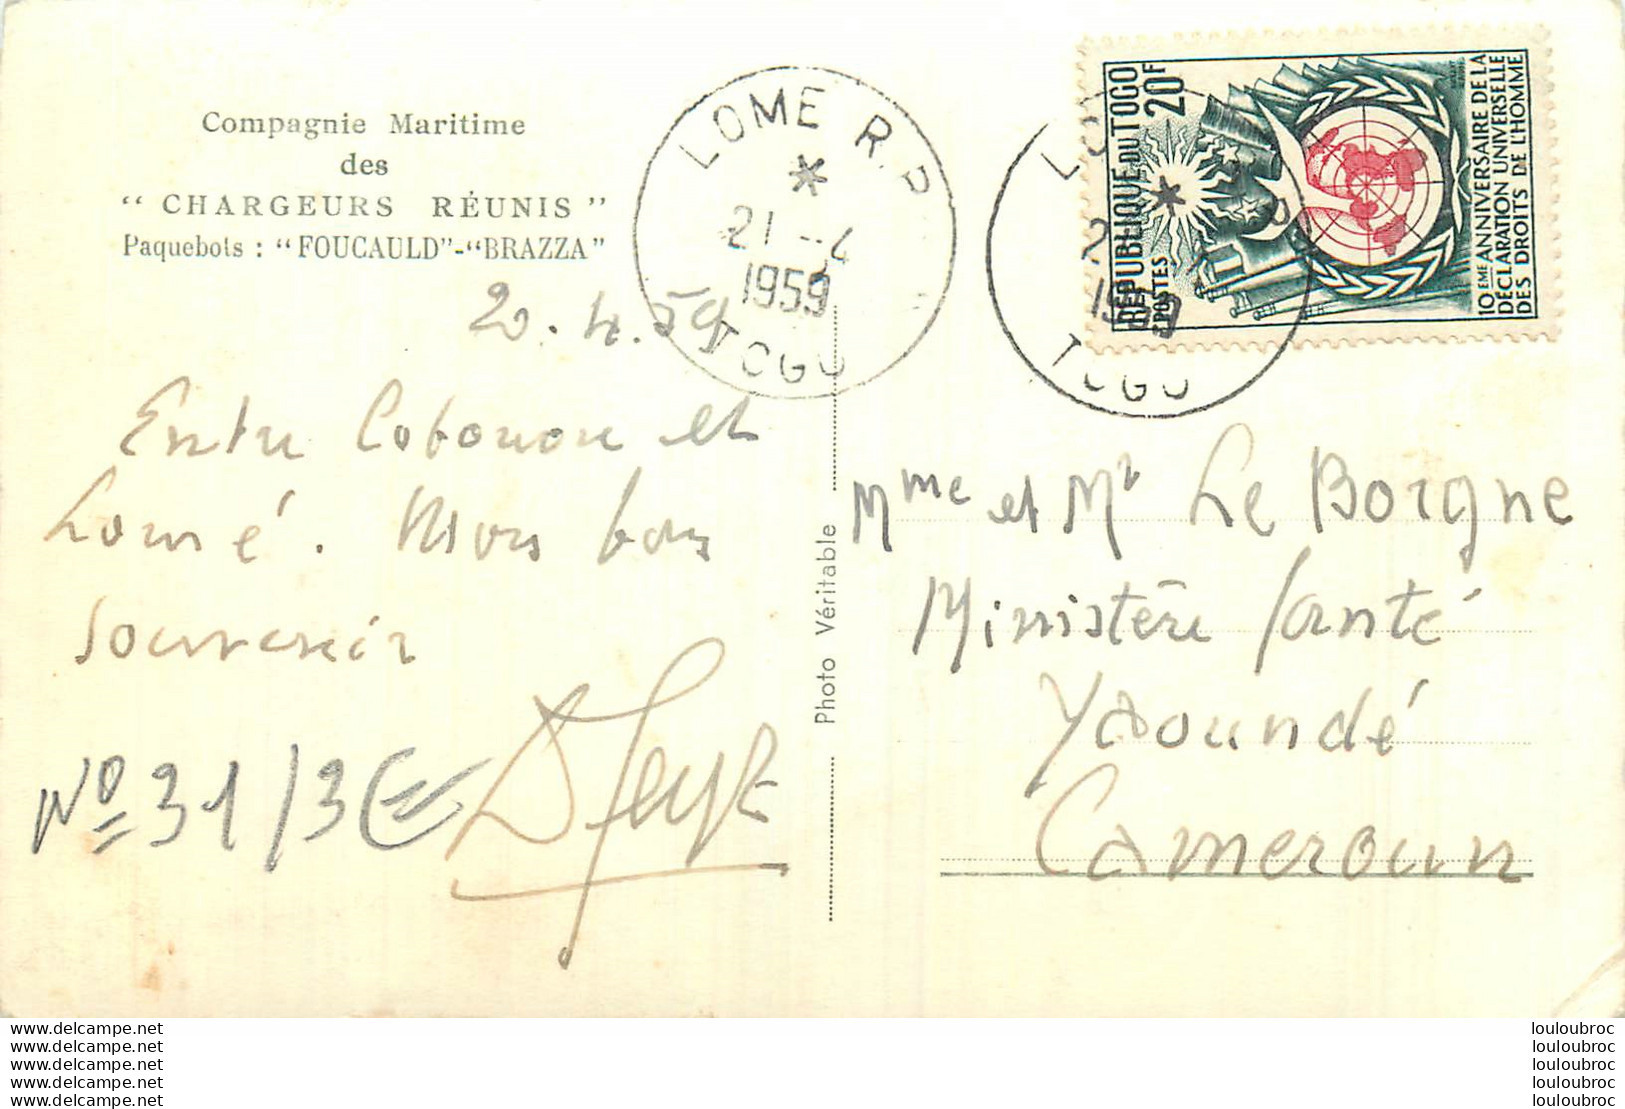 Compagnie Maritime
des
“ CHARGEURS RÉUNIS ”
Paquebots : “FOUCAULD”-“BRAZZA”
20.4.59
Entre Cotonou et
Lomé. Mon bon
souvenir
Nº 31/3
Photo Véritable
LOME R.P
21 -4
1959
TOGO
LO
2
1959
TOGO
REPUBLIQUE DU TOGO
POSTES 20F
10EME ANNIVERSAIRE DE LA
DÉCLARATION UNIVERSELLE
DES DROITS DE L'HOMME
Mme et Mr Le Borgne
Ministère Santé
Yaoundé
Cameroun
louloubroc
louloubroc
louloubroc
louloubroc
louloubroc
www.delcampe.net
www.delcampe.net
www.delcampe.net
www.delcampe.net
www.delcampe.net